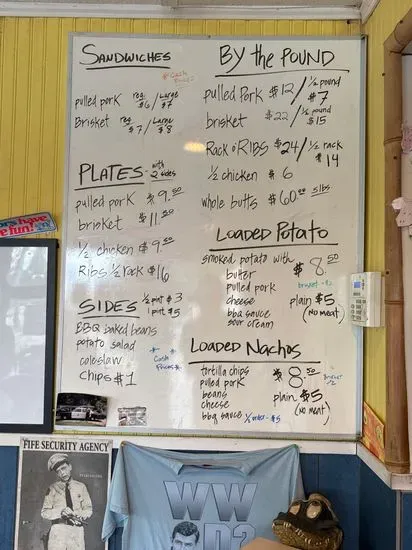 SANDWICHES
* Cash Prices *
reg. Large
pulled pork $6/$7
reg. Large
Brisket $7/$8
PLATES with 2 sides
pulled pork $9.50
brisket $11.50
1/2 chicken $9.00
Ribs 1/2 rack $16
SIDES 1/2 pint $3
1 pint $5
BBQ baked beans
potato salad
coleslaw
Chips $1
* Cash Prices *
By the POUND
pulled Pork $12/ 1/2 pound $7
brisket $22/ 1/2 pound $15
Rack o' RIBS $24/ 1/2 rack $14
1/2 chicken $6
whole butts $60.00 5lbs
LOADED POTATO
smoked potato with $8.50
butter
pulled pork brisket +$2
cheese plain $5
bbq sauce (NO MEAT)
sour cream
LOADED NACHOS
tortilla chips $8.50
pulled pork
beans plain $5
cheese (NO MEAT)
bbq sauce 1/2 order - $5
FIFE SECURITY AGENCY
WW
D?